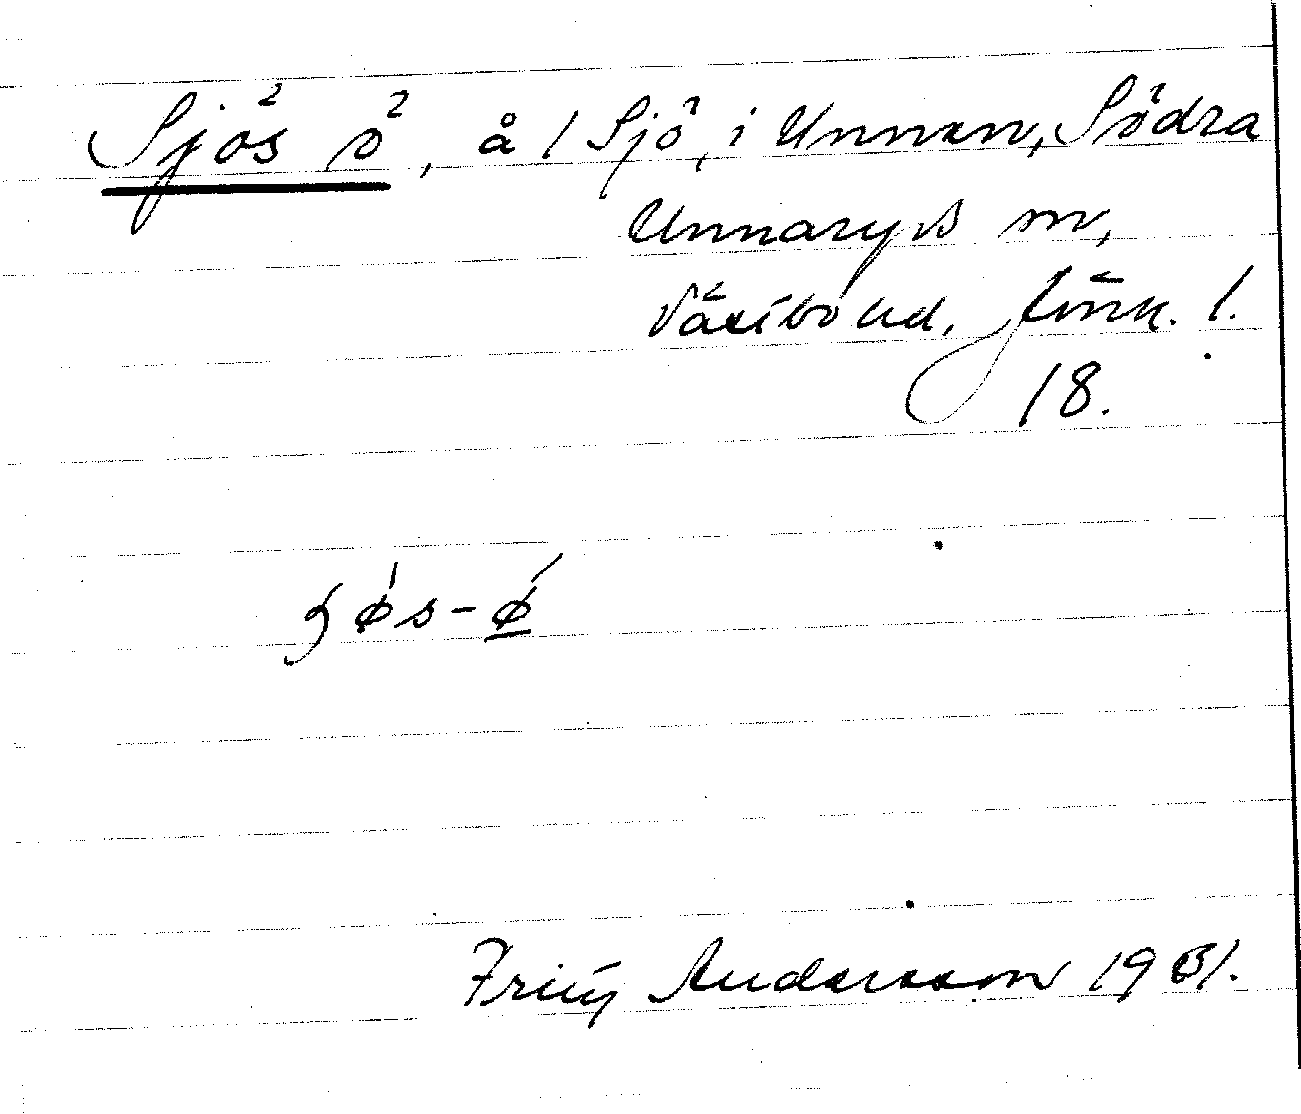 Sjös ö, å / Sjö, i Unnen, Södra
Unnaryds sn,
Västbo hd, Jönk. l.
18.
ɧøs-ø
Fritz Andersson 1931.